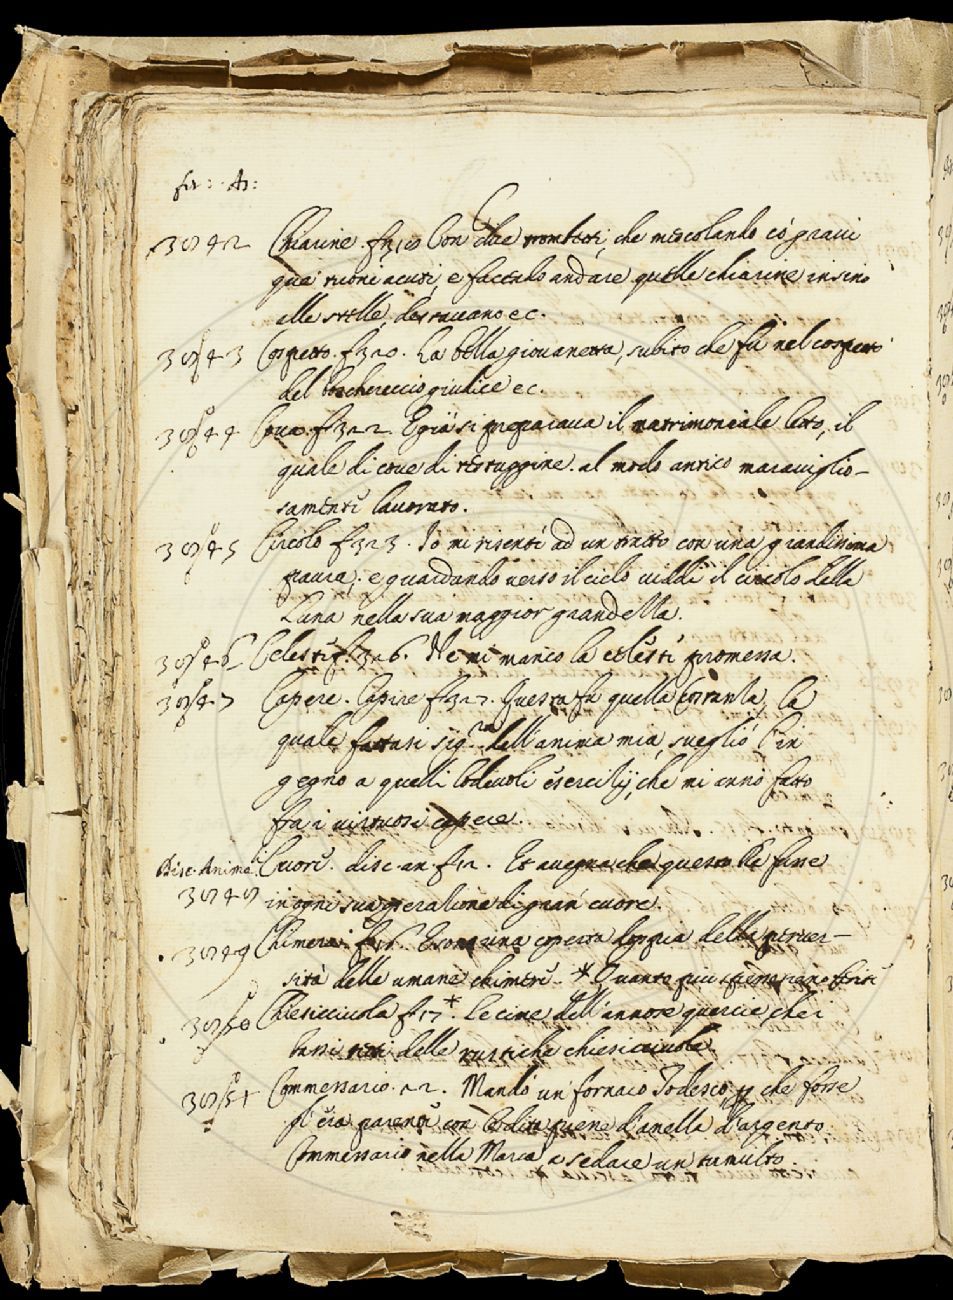 fir: As:
3842 Chiarine. f.310 Con due trombetti, che mescolando co' gravi
que' suoni acuti, e facendo andare quelle chiarine insino
alle stelle, destavano ec.
3843 Cospetto. f.320. La bella giovanetta, subito che fù nel cospetto
del boschereccio giudice ec.
3844 Cova. f.322. E già si preparava il matrimoniale letto, il
quale di cove di testuggine al modo antico maraviglio-
samente lavorato.
3845 Circolo f.323. Io mi risentì ad un tratto con una grandissima
paura, e guardando verso il cielo viddi il circolo della
Luna nella sua maggior grandezza.
3846 Celeste f.326. Ne mi mancò la celeste promessa.
3847 Capere. Capire f.327. Questa fu quella Costanza, la
quale fattasi sig.ra dell'anima mia, svegliò l'in
gegno a quelli lodevoli esercitij, che mi anno fatto
fra i virtuosi capere.
Disc. Anima. Cuore. disc. an. f.12. Et avegna che questo Re fusse
3848 in ogni sua operatione di gran cuore.
3849 Chimera. f.16. E sono una coperta della perver-
sità delle umane chimere * Quanto piu
3850 Chiesicciola f.17*. le cime dell'annose quercie, che i
bassi tetti delle rustiche chiesicciuole
3851 Commessario. 22. Mandò un fornaco Todesco, che forse
gl'era parente con lodira piene d'anella d'argento
Commessario nella Marca a sedare un tumulto.